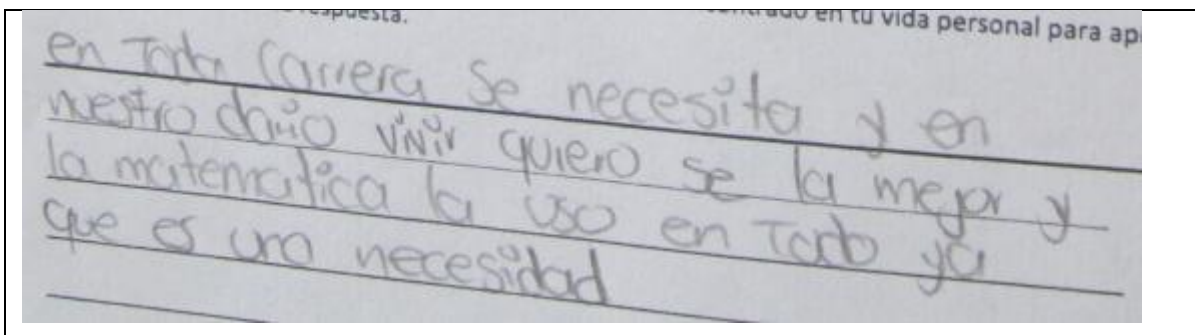 respuesta.
en tu vida personal para ap
en Toda Carrera Se necesita y en
nuestro dario vivir quiero se la mejor y
la matematica la uso en Todo ya
que es una necesidad